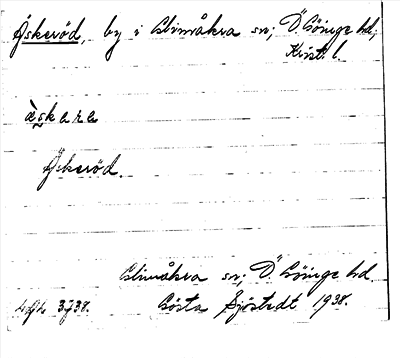 Åskeröd, by i Glimåkra sn; Ö. Göinge hd,
Krist. l.
àskera
Åskeröd.
Glimåkra sn; Ö. Göinge hd.
Gösta Sjöstedt 1938.